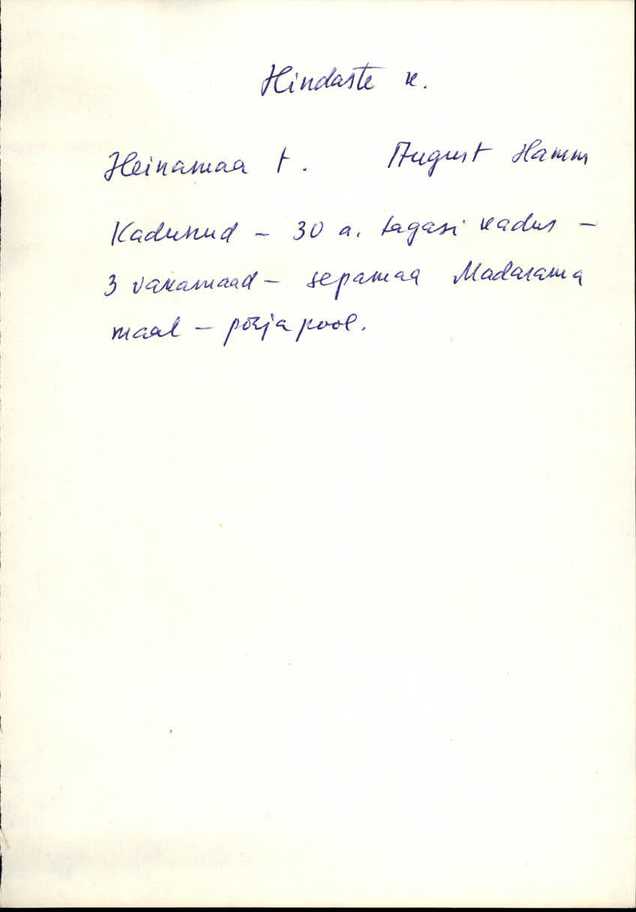 Hindaste k.
Heinamaa t. August Hamm
Kadunud – 30 a. tagasi kadus –
3 vakamaad – sepamaa Madarama
maal – põhja pool.